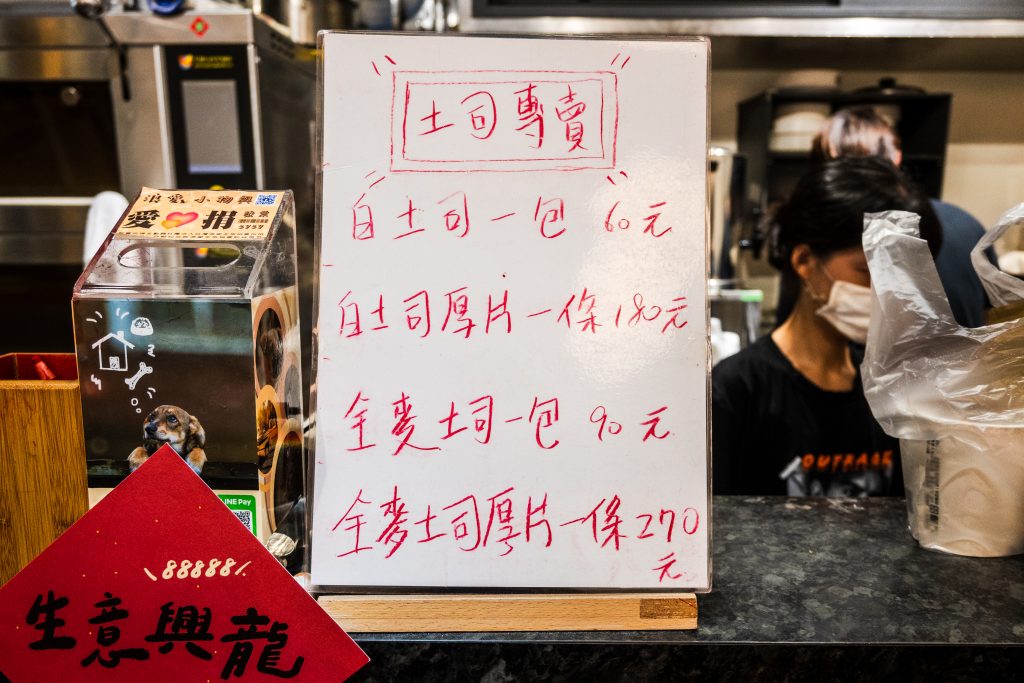 土司專賣
白土司一包 60元
白土司厚片一條180元
全麥土司一包 90元
全麥土司厚片一條270
元
浪愛小物興
愛 捐 發票
5757
LINE Pay
88888
生意興龍
OUTRAGE